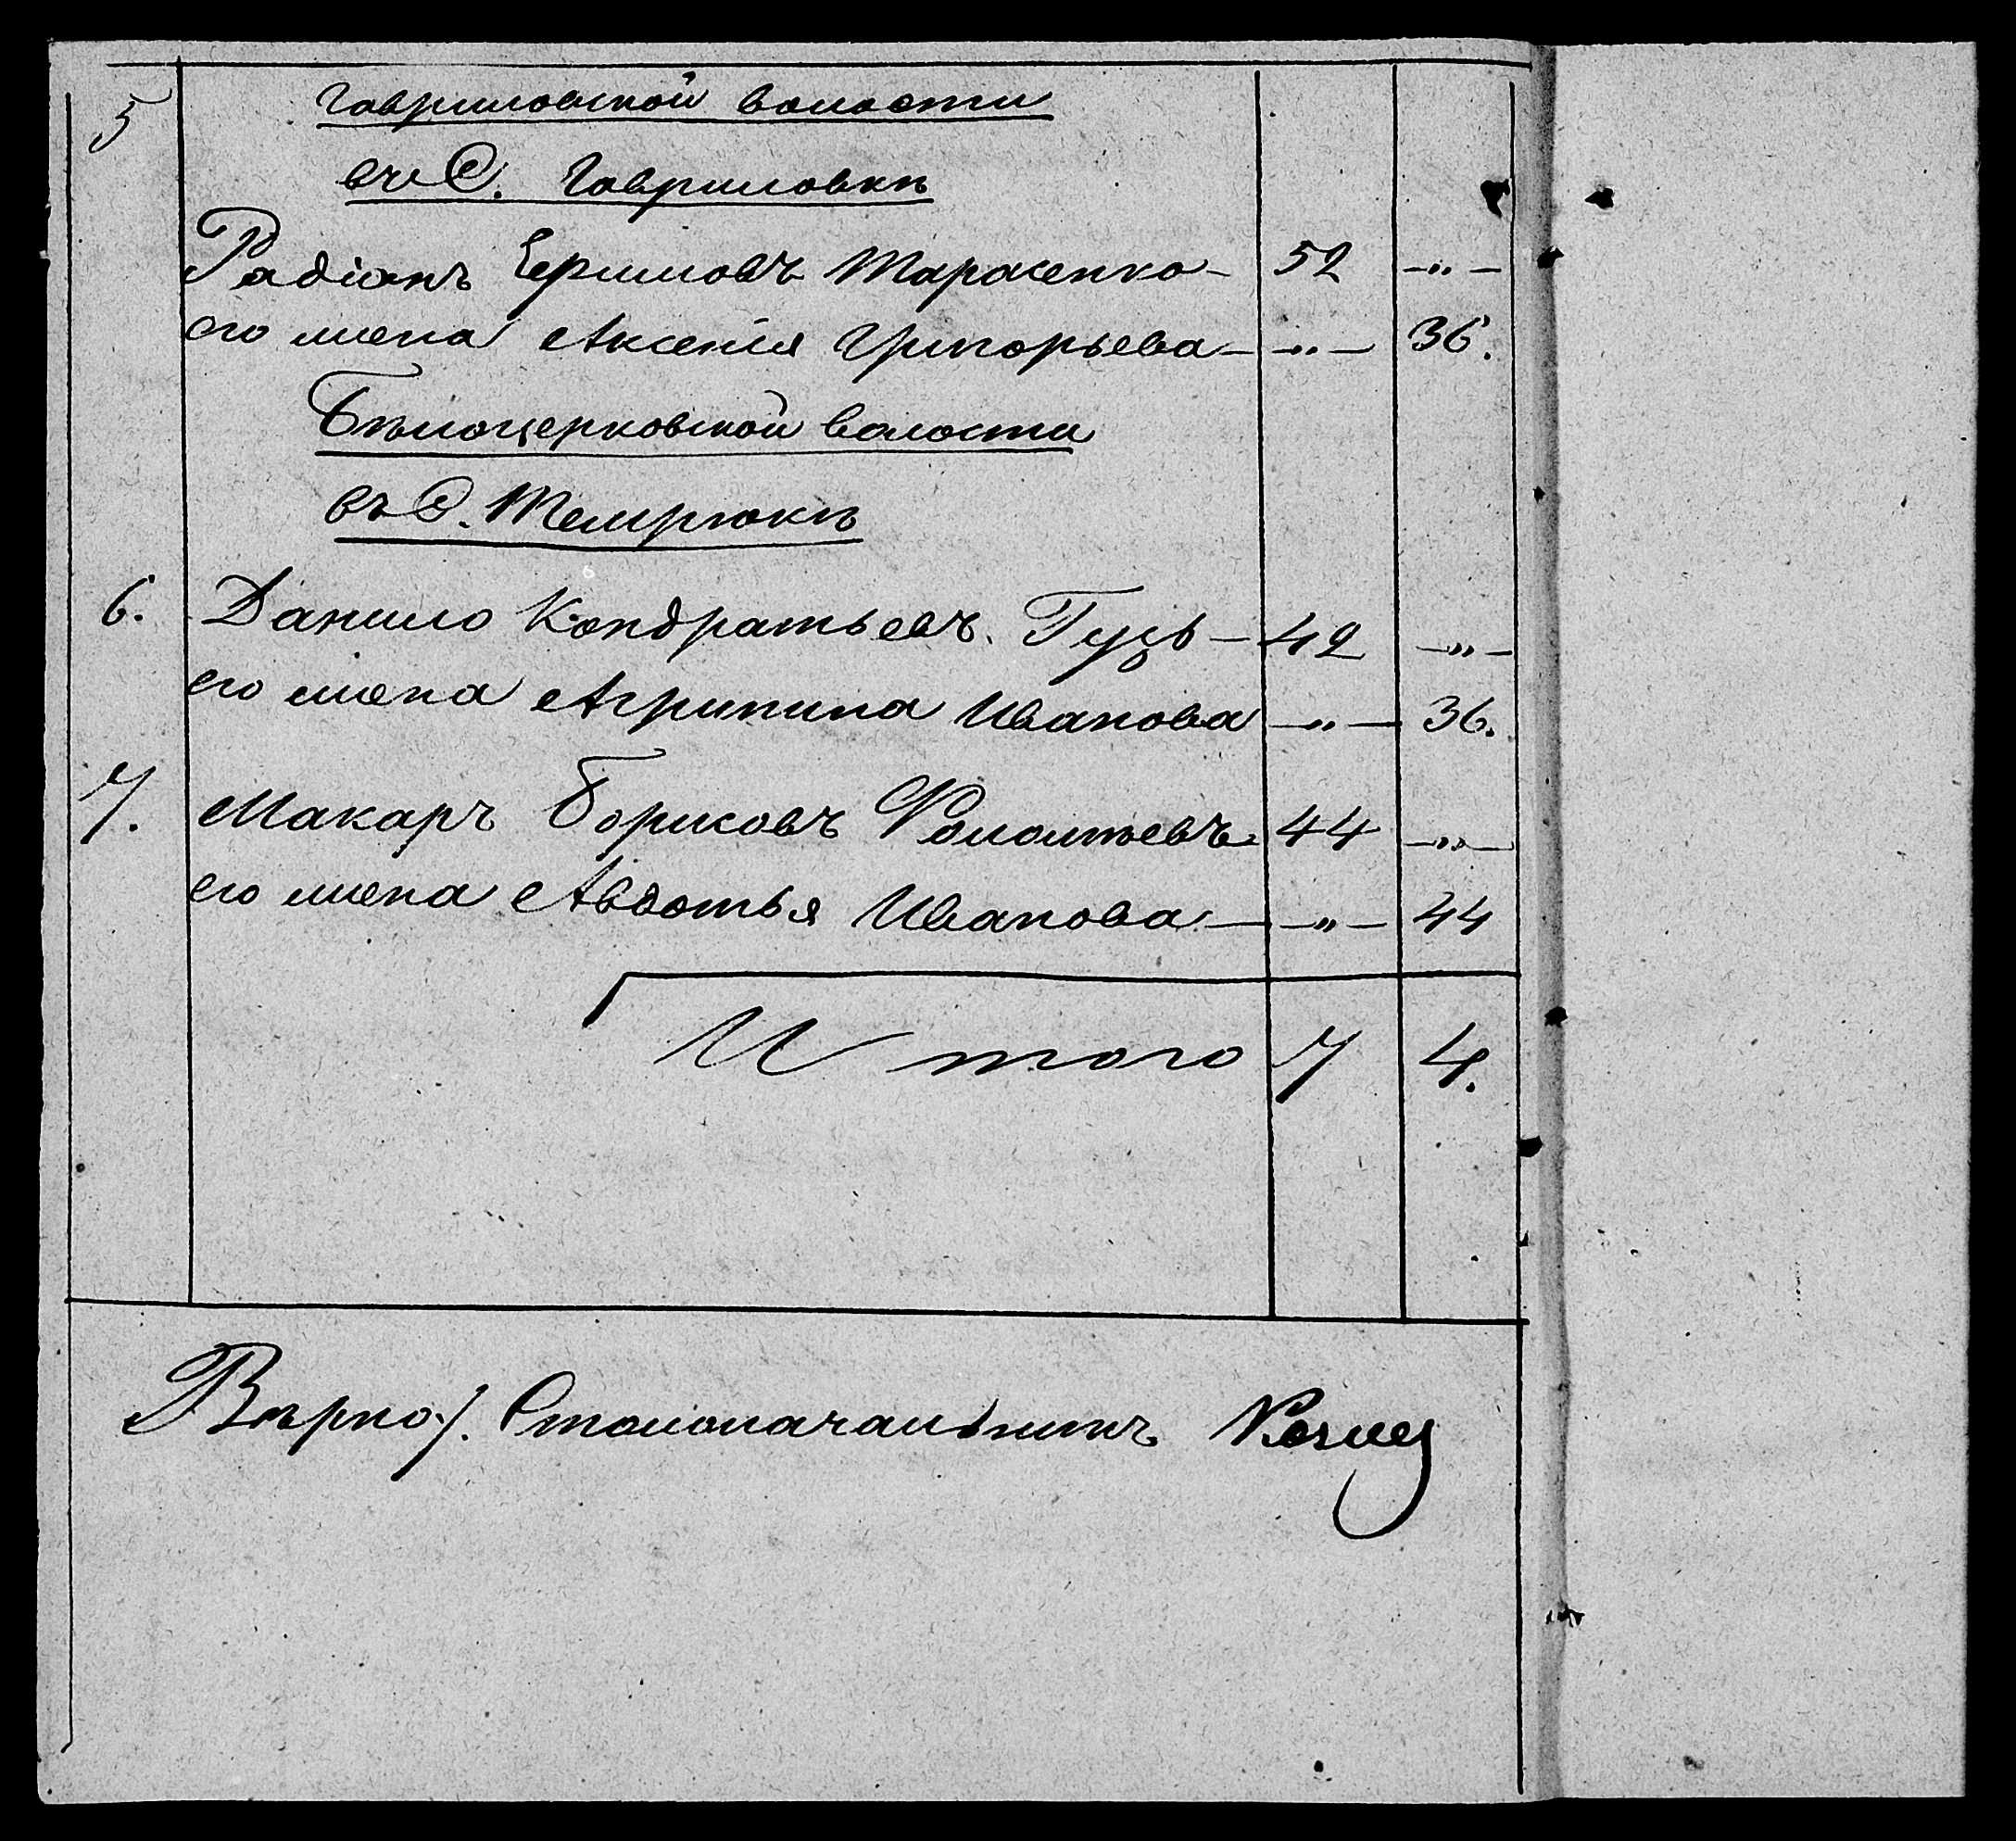 5 Гавриловской волости
въ С. Гавриловкѣ
Радіонъ Ефимовъ Тарасенко — 52 — „ —
его жена Аксенія Григорьева — „ — 36.
Бѣлоцерковской волости
въ С. Темрюкѣ
6. Данило Кондратьевъ Гузь — 42 — „ —
его жена Агрипина Иванова — „ — 36.
7. Макаръ Борисовъ 44 — „ —
его жена Авдотья Иванова — „ — 44
И того 7 4.
Вѣрно: Столоначальникъ